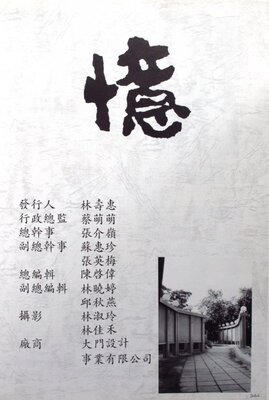 憶
發行人 林壽惠
行政總監 蔡萌萌
總幹事 張介嶺
副總幹事 蘇惠珍
張英梅
總編輯 陳啓偉
副總編輯 林曉婷
邱秋燕
攝影 林淑玲
林佳禾
廠商 大門設計
事業有限公司